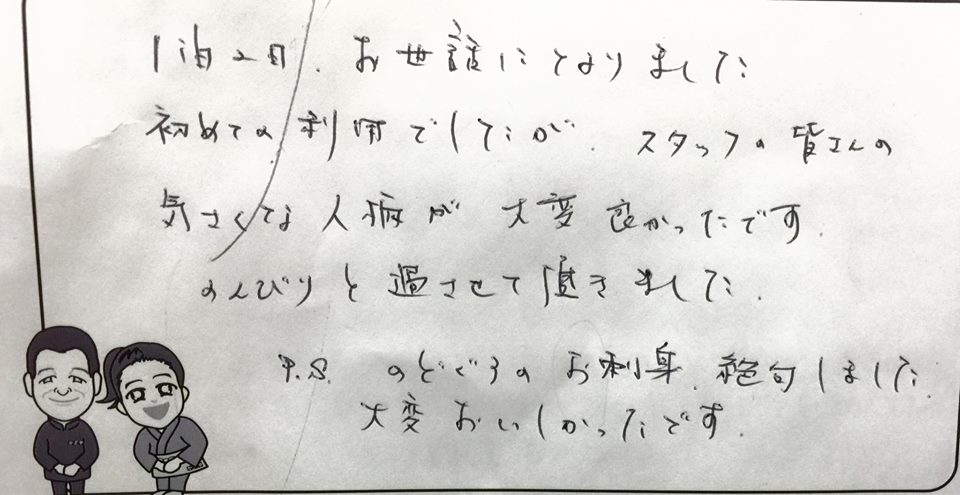 1泊2日、お世話になりました
初めての利用でしたが、スタッフの皆さんの
気さくな人柄が大変良かったです。
のんびりと過させて頂きました。
P.S. のどぐろのお刺身、絶句しました
大変おいしかったです。